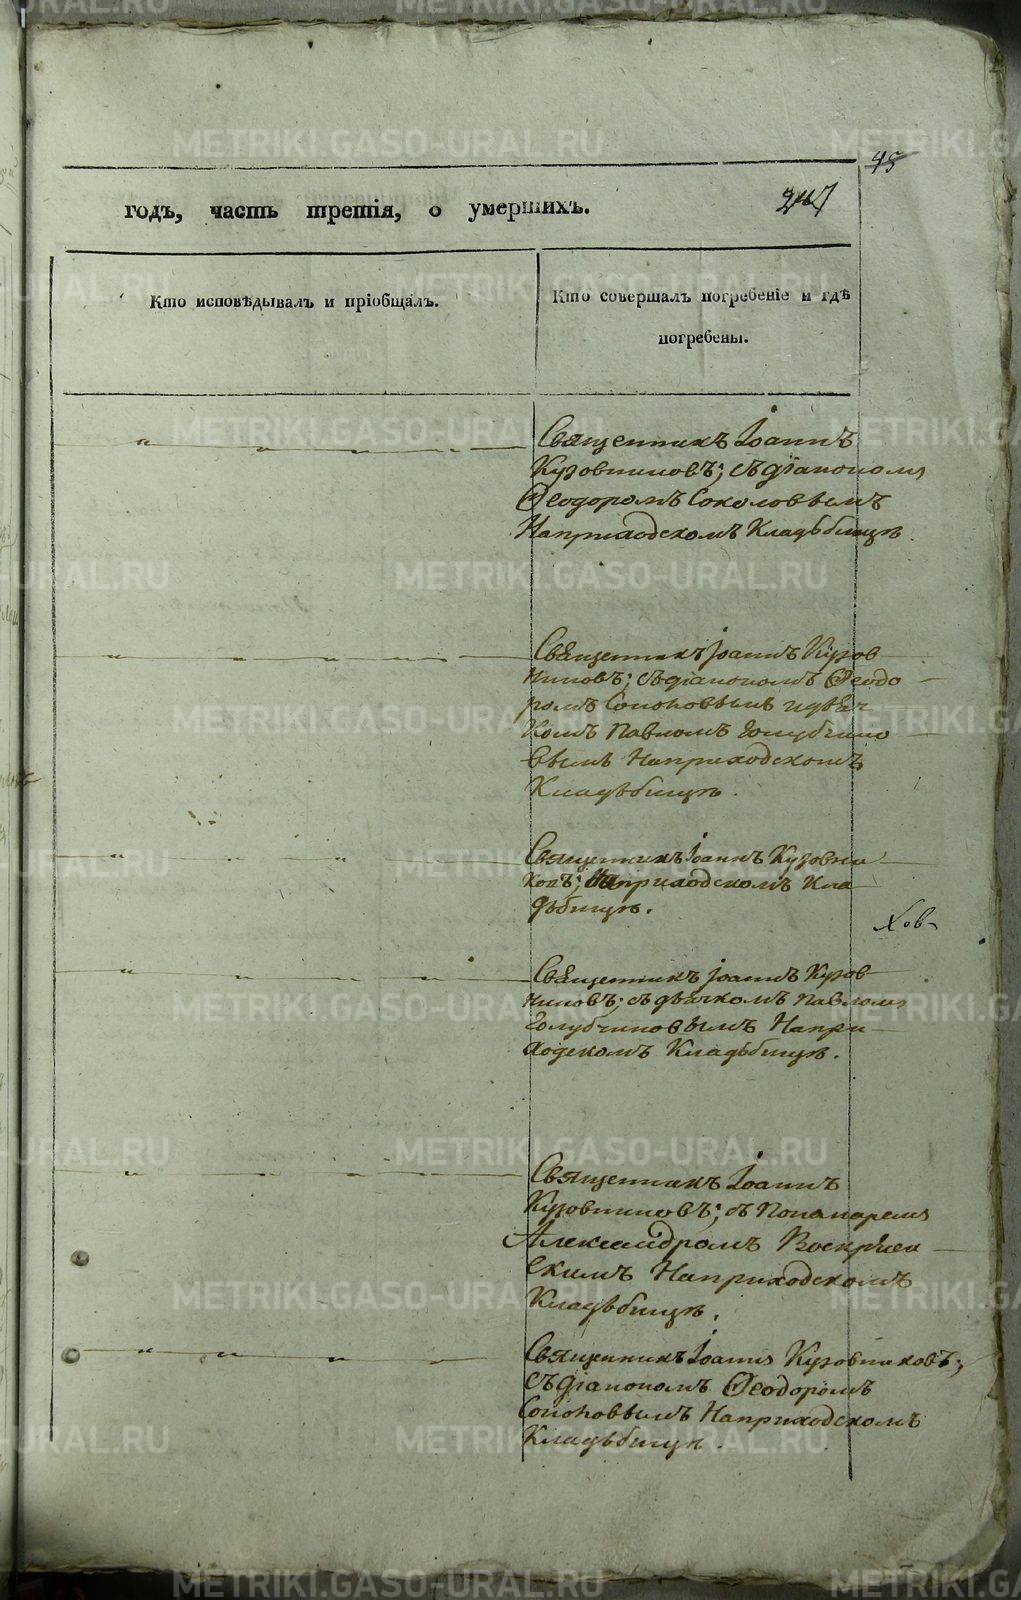 45
годъ, часть третія, о умершихъ.
247
Кто исповѣдывалъ и пріобщалъ.
Кто совершалъ погребеніе и гдѣ
погребены.
Священникъ Іоаннъ
Кузовниковъ; съ діакономъ
Ѳеодоромъ Соколовымъ
На приходскомъ Кладьбищѣ
Священникъ Іоаннъ Кузов
никовъ; съ діакономъ Ѳеодо
ромъ Соколовымъ и дьяч
комъ Павломъ Голубчико
вымъ На приходскомъ
Кладьбищѣ.
Священникъ Іоаннъ Кузовни
ковъ; На приходскомъ Кла
дьбищѣ.
Хов
Священникъ Іоаннъ Кузов
никовъ; съ дьячкомъ Павломъ
Голубчиковымъ На при
ходскомъ Кладьбищѣ.
Священникъ Іоаннъ
Кузовниковъ; съ Пономаремъ
Александромъ Воскресен
скимъ На приходскомъ
Кладьбищѣ.
Священникъ Іоаннъ Кузовниковъ;
съ діакономъ Ѳеодоромъ
Соколовымъ На приходскомъ
Кладьбищѣ.
METRIKI.GASO-URAL.RU